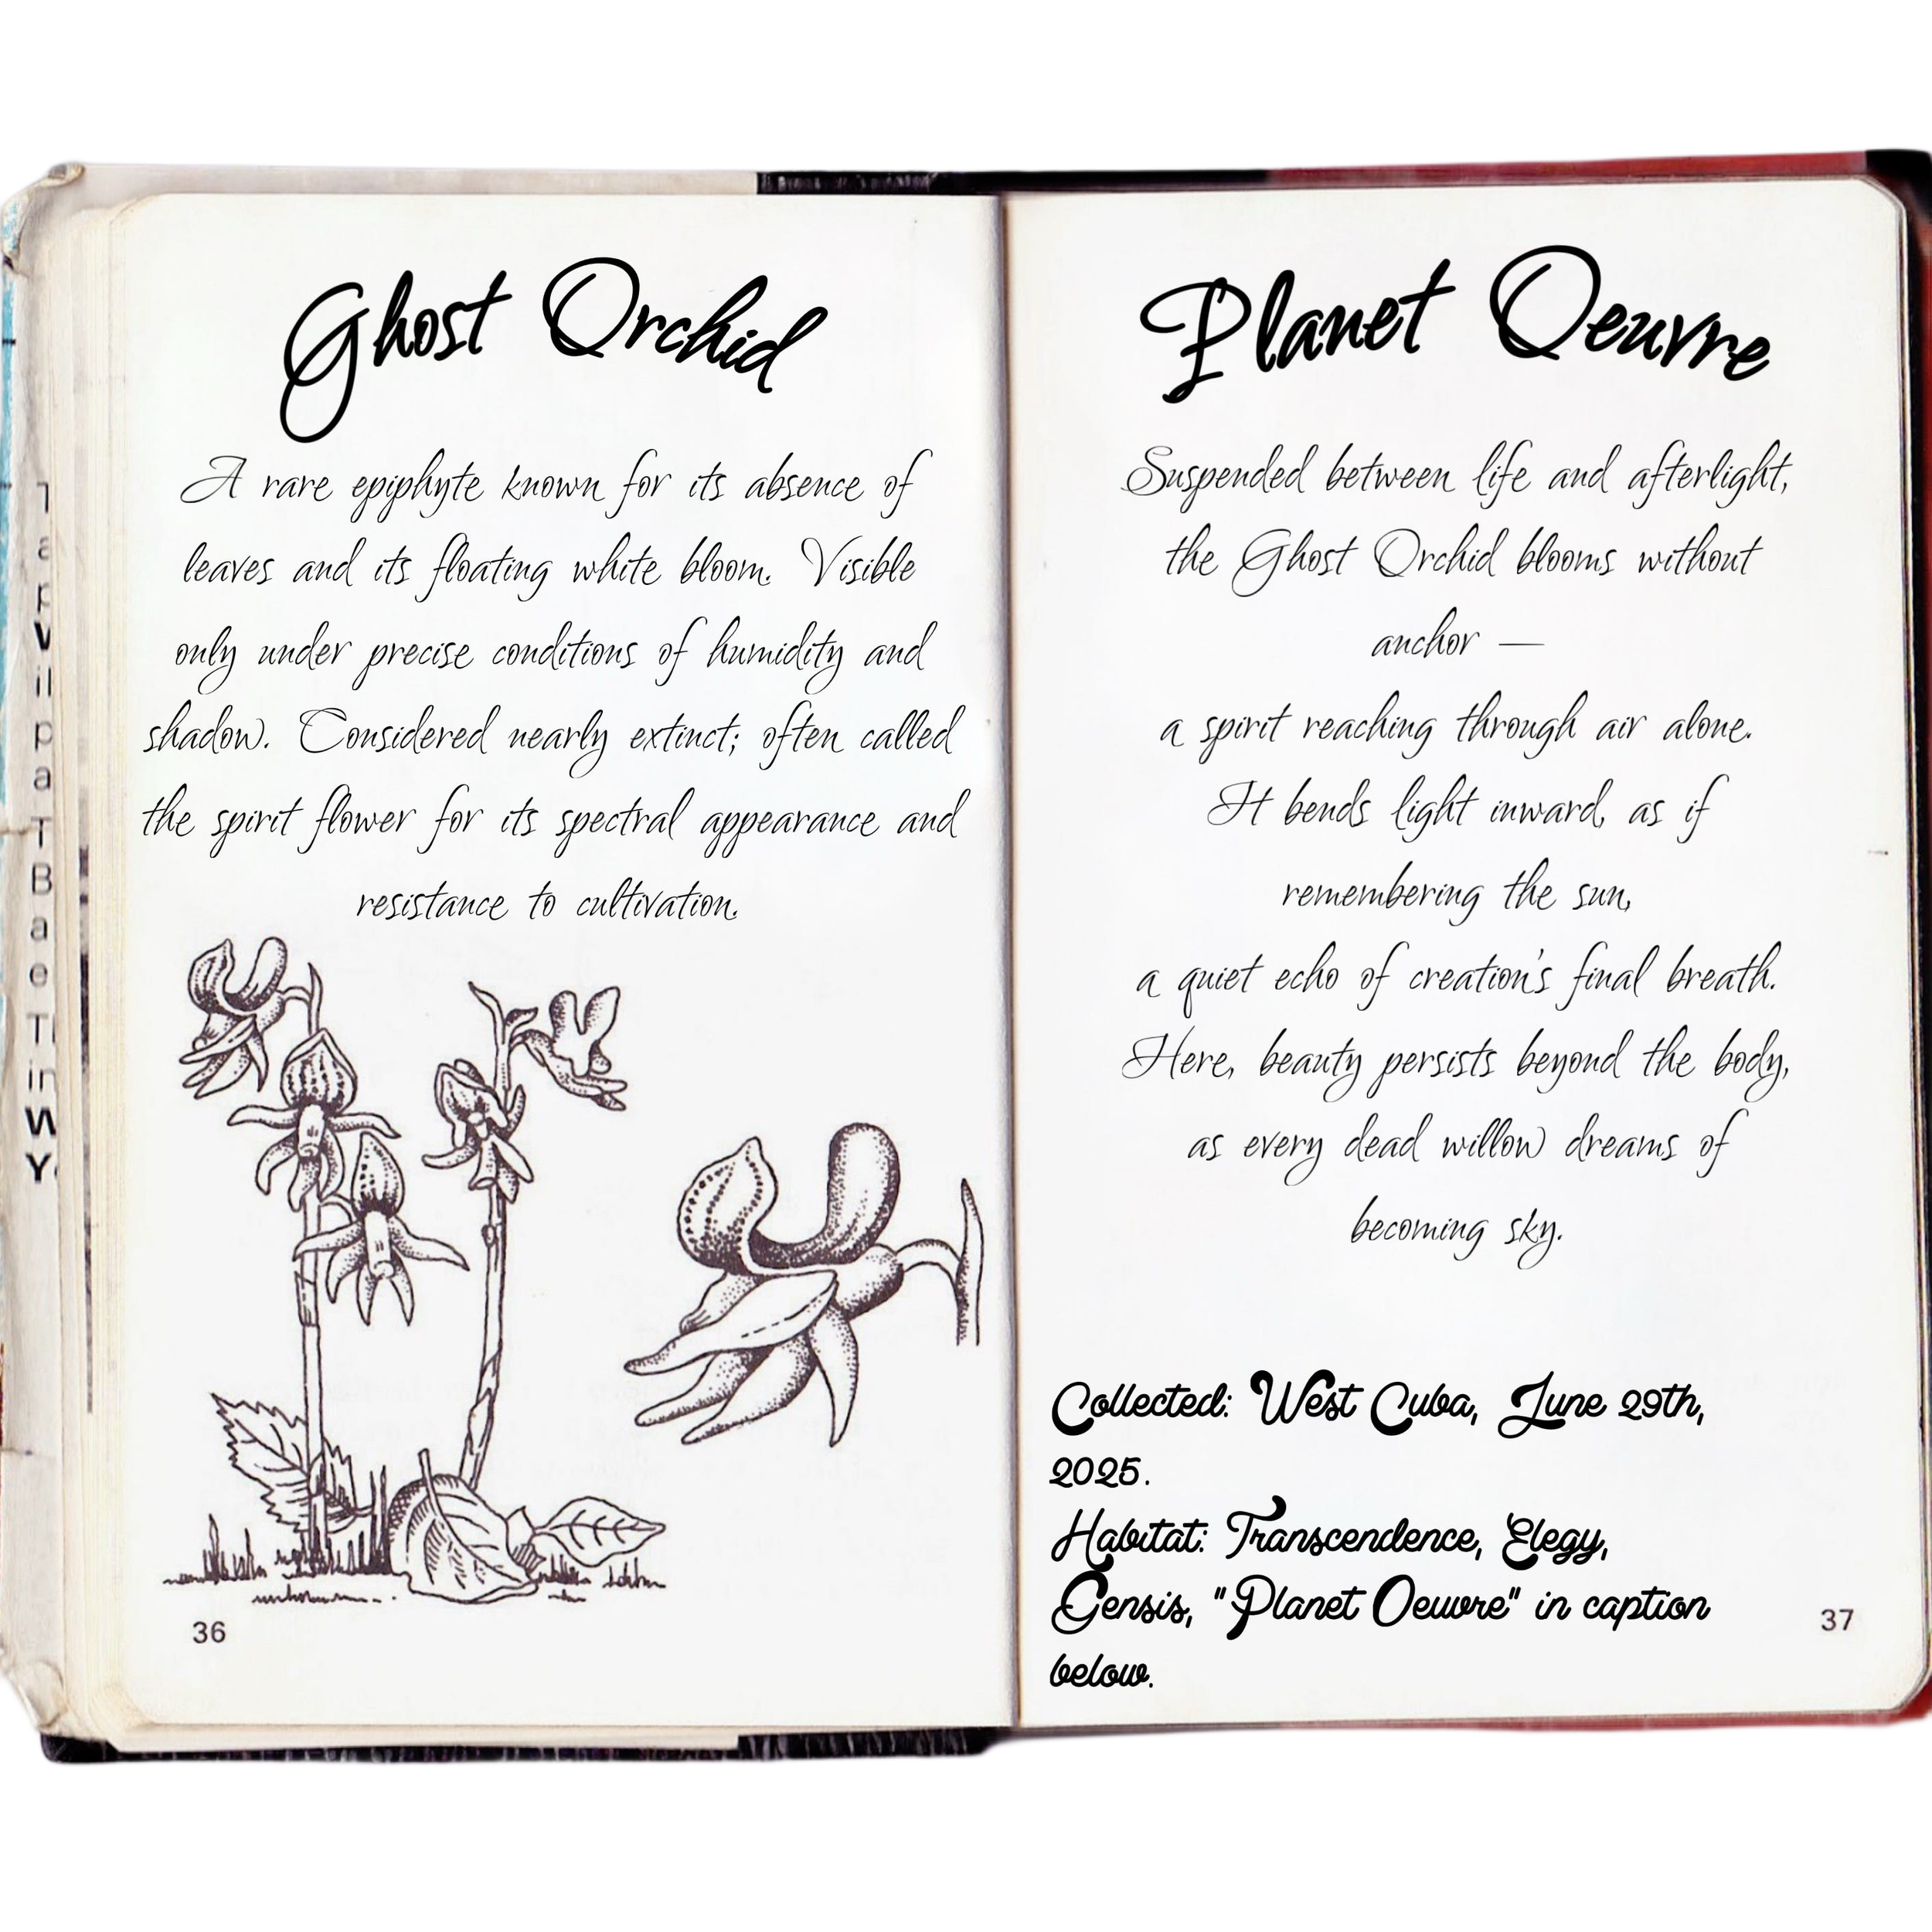 Ghost Orchid
A rare epiphyte known for its absence of
leaves and its floating white bloom. Visible
only under precise conditions of humidity and
shadow. Considered nearly extinct; often called
the spirit flower for its spectral appearance and
resistance to cultivation.
36
Planet Oeuvre
Suspended between life and afterlight,
the Ghost Orchid blooms without
anchor —
a spirit reaching through air alone.
It bends light inward, as if
remembering the sun,
a quiet echo of creation's final breath.
Here, beauty persists beyond the body,
as every dead willow dreams of
becoming sky.
Collected: West Cuba, June 29th,
2025.
Habitat: Transcendence, Elegy,
Gensis, "Planet Oeuvre" in caption
below.
37